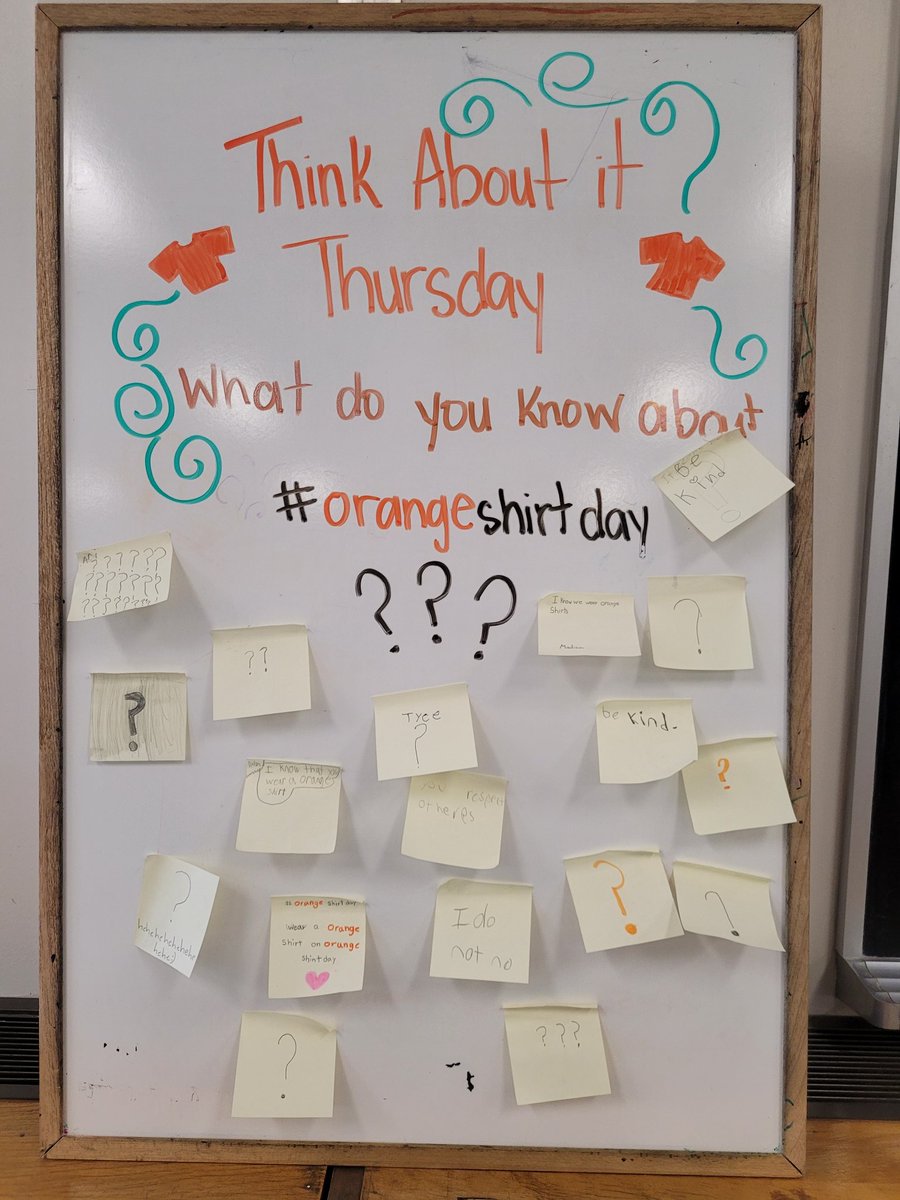 Think About it
Thursday
What do you know about
#orangeshirtday
???
Be
Kind
? ? ? ? ? ?
I know we wear orange
Shirts
Madison
?
??
?
Tree
?
be Kind-
?
I know that you
wear a orange
shirt
you respect
otheres
?
?
?
hehehehehehehe
hehe:)
# orange shirt day
wear a orange
shirt on orunge
shirtday
I do
not no
?
???